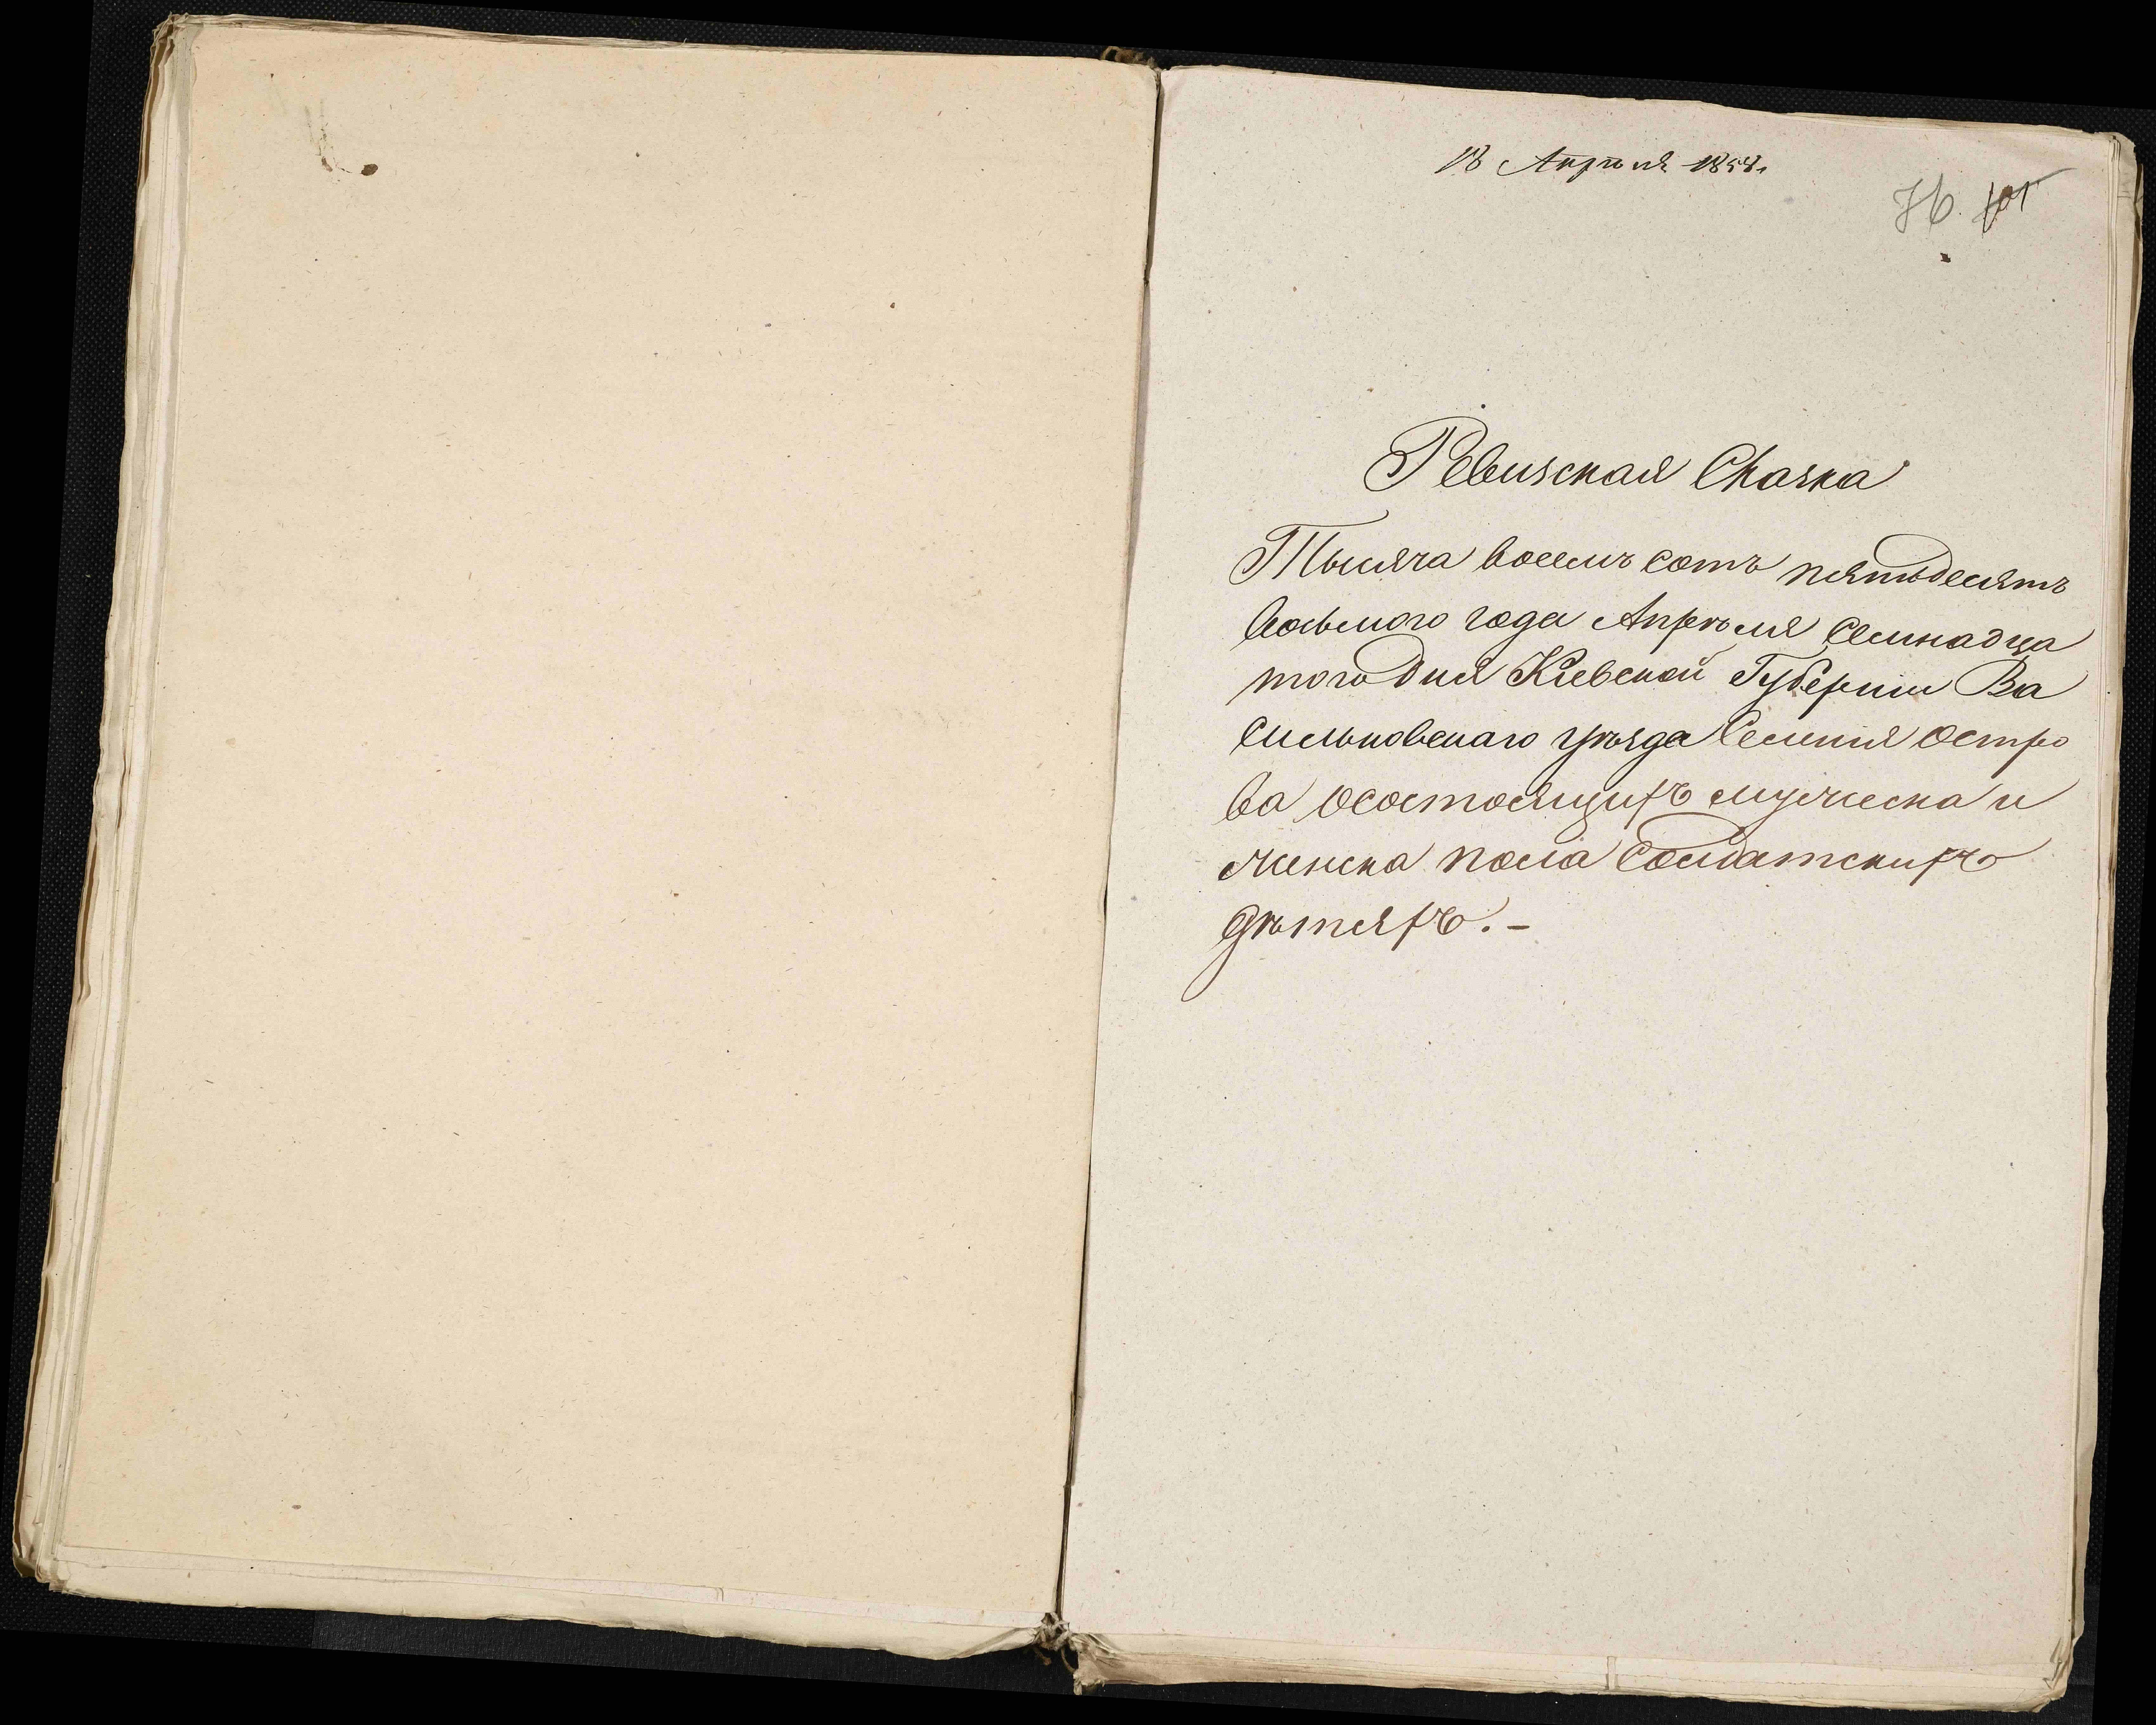 18 Апрѣля 1858.
76. 101
Ревизская Сказка
Тысяча восемъ сотъ пятьдесятъ
восьмого года Апрѣля семнадца
того дня Кіевской Губерніи Ва
сильковскаго уѣзда Селенія Остро
ва осостоящихъ мужеска и
женска пола Солдатскихъ
дѣтяхъ.-